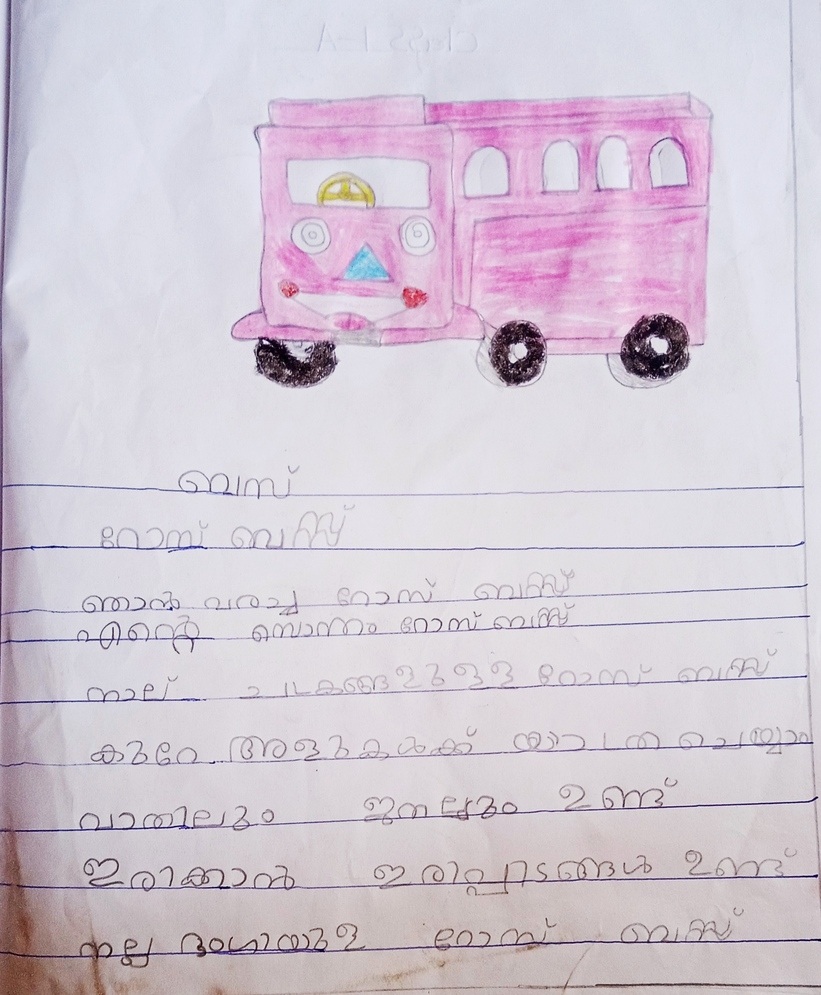 ബെസ്
റോസ് ബെസ്സ്
ഞാൻ വരച്ച റോസ് ബസ്സ്
എന്റെ സ്വൊന്തം റോസ് ബസ്സ്
നാല് ചക്രങ്ങളുള്ള റോസ് ബസ്സ്
കുറേ ആളുകൾക്ക് യാത്ര ചെയ്യാം
വാതിലും ജനലും ഉണ്ട്
ഇരിക്കാൻ ഇരിപ്പിടങ്ങൾ ഉണ്ട്
നല്ല ഭംഗിയുള്ള റോസ് ബെസ്സ്